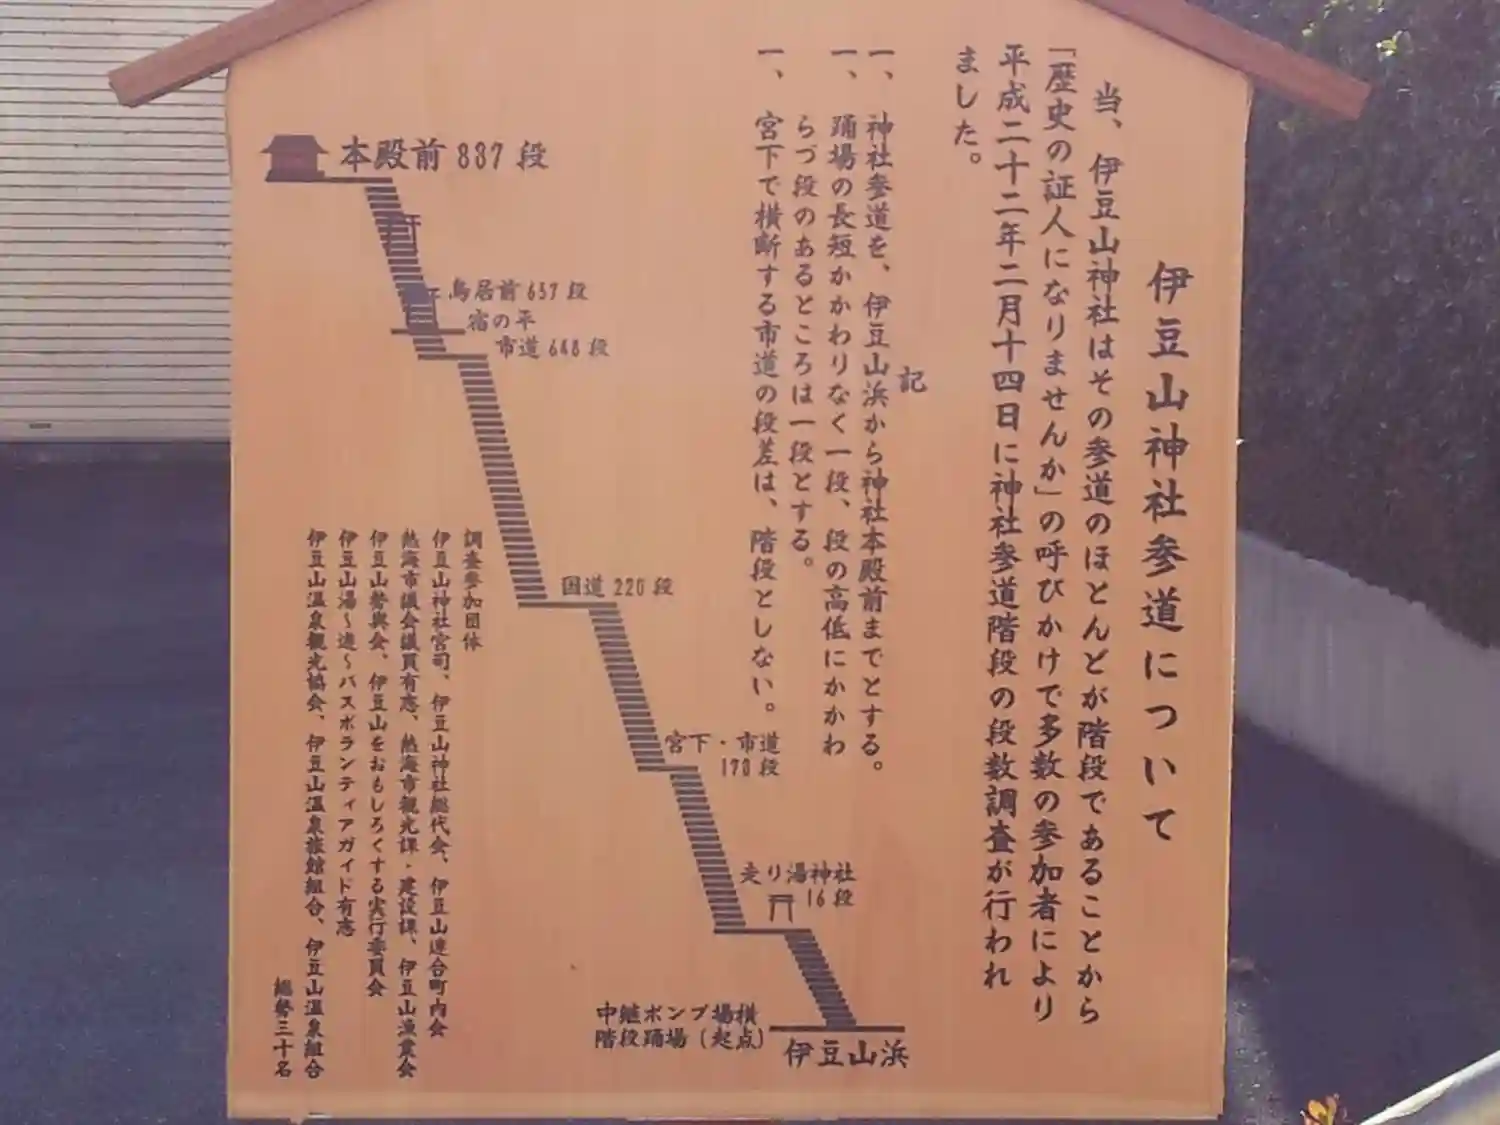 伊豆山神社参道について
当、伊豆山神社はその参道のほとんどが階段であることから
「歴史の証人になりませんか」の呼びかけで多数の参加者により
平成二十二年二月十四日に神社参道階段の段数調査が行われ
ました。
記
一、神社参道を、伊豆山浜から神社本殿前までとする。
一、踊場の長短かかわりなく一段、段の高低にかかわ
らづ段のあるところは一段とする。
一、宮下で横断する市道の段差は、階段としない。
本殿前 837 段
鳥居前 657 段
宿の平
市道 648 段
国道 220 段
宮下・市道
178 段
走り湯神社
16 段
中継ポンプ場横
階段踊場（起点）
伊豆山浜
調査参加団体
伊豆山神社宮司、伊豆山神社総代会、伊豆山連合町内会
熱海市議会議員有志、熱海市観光課・建設課、伊豆山漁業会
伊豆山勢興会、伊豆山をおもしろくする実行委員会
伊豆山湯～遊～バスボランティアガイド有志
伊豆山温泉観光協会、伊豆山温泉旅館組合、伊豆山温泉組合
総勢三十名